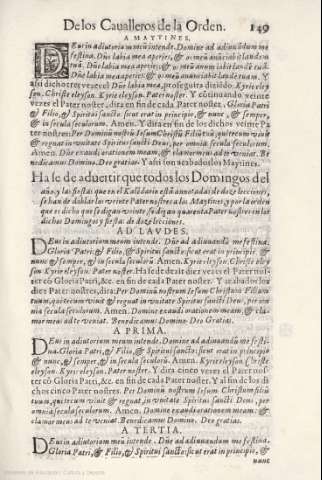 De los Caualleros de la Orden. 149
A MAYTINES.
DEus in adiutoriũ meũ intende. Domine ad adiuuandum me
festina. Dñe labia mea aperies, & os meũ annũciabit laudem
tuã. Dñe labia mea aperies, & os meũ annunciabit laudẽ tuã.
Dñe labia mea aperies: & os meũ anũciabit laudẽ tuam. Y
assi dicho tres vezes el Dñe labia mea, prosseguira diziẽdo. Kyrie eley
son, Christe eleyson. Kyrie eleyson. Pater noster. Y cõtinuando veinte
vezes el Pater noster, dira en fin de cada Pater noster. Gloria Patri
& Filio, & Spiritui sancto. sicut erat in principio, & nunc, & semper,
& in secula seculorum. Amen. Y dira en fin de los dichos veinte Pa
ter nostres: Per Dominũ nostrũ Iesum Christũ Filiũ tuũ, qui tecum viuit
& regnat in vnitate Spiritus sancti Deus, per omnia secula seculorum.
Amen. Dñe exaudi orationem meam, & clamor meus ad te veniat. Be
nedicamus Domino. Deo gratias. Y assi son acabados los Maytines.
Ha se de aduertir que todos los Domingos del
año, y las fiestas que en el Kalẽdario estã annotadas de doze lecciones,
se han de doblar los veinte Pater nostres a los Maytines, y por la orden
que es dicho que se digan veinte, se digan quarenta Pater nostres en los
dichos Domingos y fiestas de doze lecciones.
AD LAVDES.
DEus in adiutorium meum intende. Dñe ad adiuuandũ me festina.
Gloria Patri, & Filio, & Spiritui sancto: sicut erat in principio, &
nunc & semper, & in secula seculorũ. Amen. Kyrie eleyson. Christe eley
son Kyrie eleyson. Pater noster. Ha se de dezir diez vezes el Pater nos
ter cõ Gloria Patri, &c. en fin de cada Pater noster. Y acabados los
diez Pater nostres, dira: Per Dominũ nostrum Iesum Christũ Filium
tuum, qui tecum viuit & regnat in vnitate Spiritus sancti Deus, per om
nia secula seculorum. Amen. Domine exaudi orationem meam, & cla
mor meus ad te veniat. Benedicamus Domino. Deo Gratias.
A PRIMA.
DEus in adiutorium meum intende. Domine ad adiuuandũ me festi
na. Gloria Patri, & Filio, & Spiritui sancto: sicut erat in principio
& nunc, & semper, & in secula seculorũ. Amen. Kyrie eleyson. Christe
eleyson. Kyrie eleyson. Pater noster. Y dira cinco vezes el Pater nos
ter cõ Gloria Patri, &c. en fin de cada Pater noster. Y al fin de los di
chos cinco Pater nostres. Per Dominũ nostrum Iesum Christum filiũ
tuum, qui tecum viuit & regnat in vnitate Spiritus sancti Deus, per
omnia secula seculorum. Amen. Domine exaudi orationem meam: &
clamor meus ad te veniat. Benedicamus Domino. Deo gratias.
A TERTIA.
DEus in adiutorium meũ intende. Dñe ad adiuuandum me festina.
Gloria Patri, & Filio, & Spiritui sancto: sicut erat in principio, &
nunc